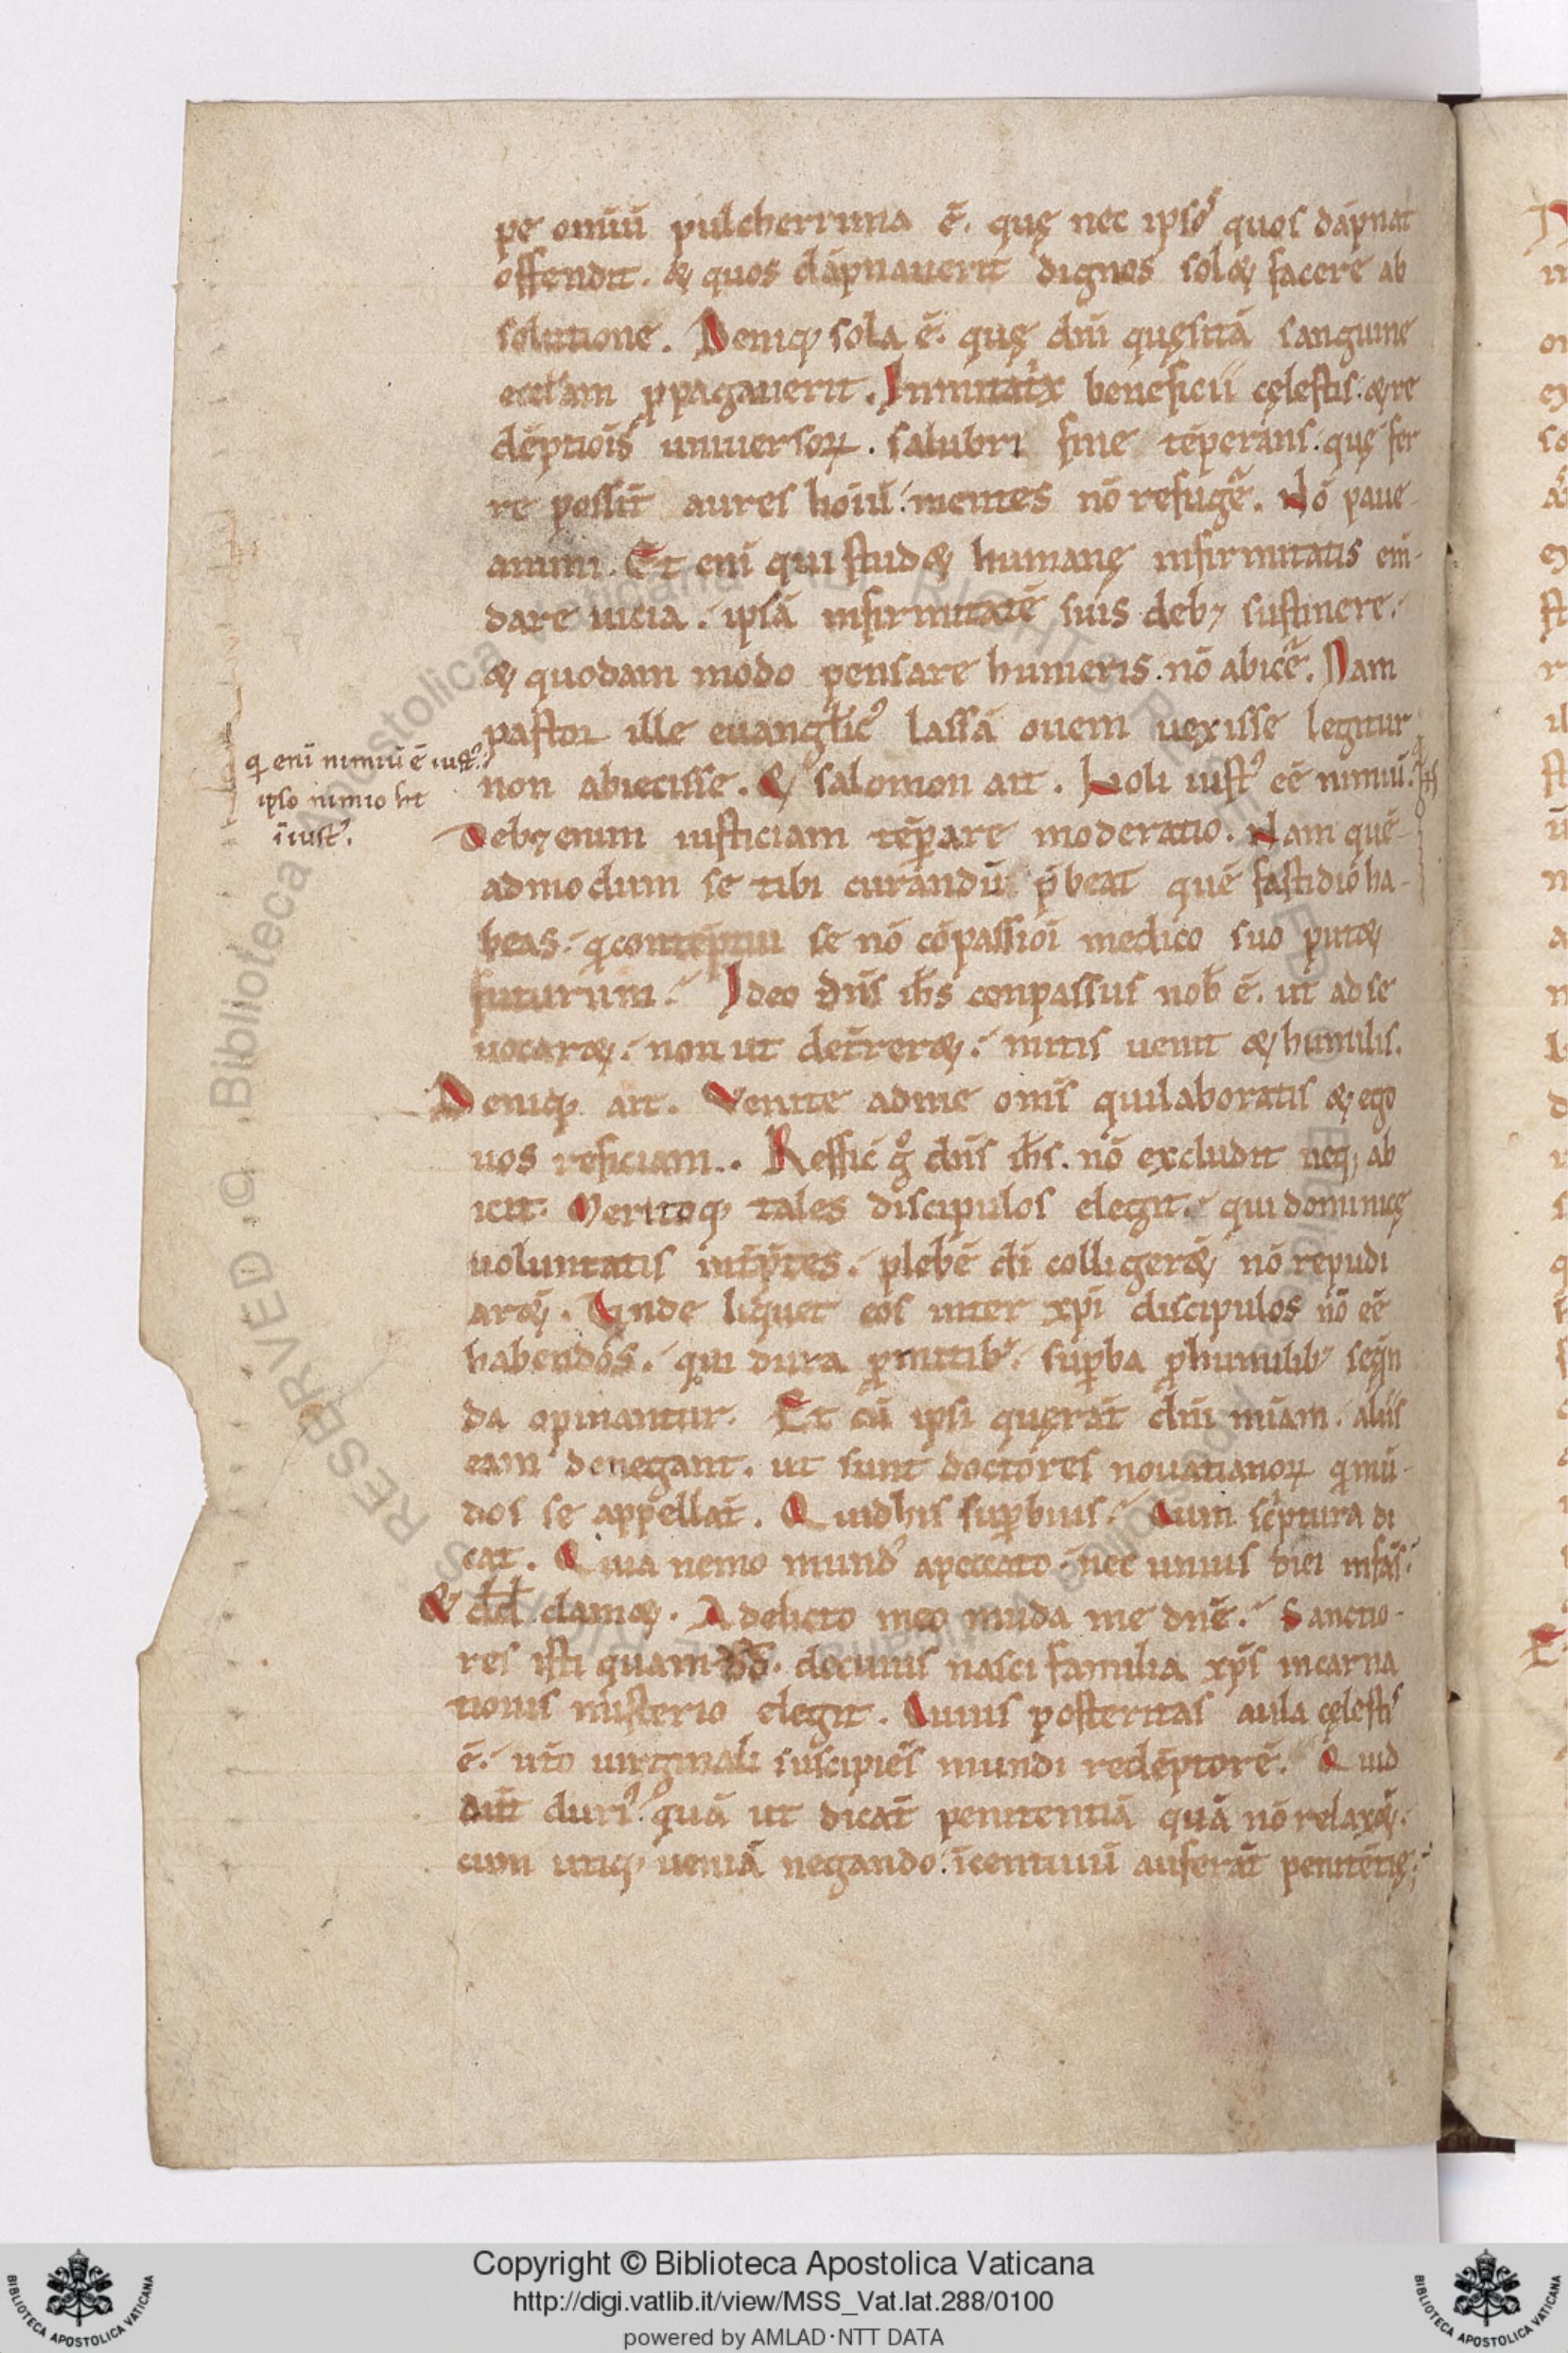 pe omiũ pulcherrima ē. quę nec ipsoꝰ quos dāpnat
offendit. & quos dāpnauerit dignos sol& facere ab
solutione. Deniq; sola ē. quę dnī quęsitā sanguine
eccl̄am ꝓpagauerit. Inmitatͥx beneficii cęlestis. & re
dēptiois̄ uniuersoꝝ. salubri fine tēperans. quę fer
re possīt aures hoīu᷒. mentes nō refugẽ. Nō paue-
animi. Et eni qui stud& humanę infirmitatis em̄-
dare uicia. ipsā infirmitatē suis deb; sustinere.
& quodam modo pensare humeris. nō abicẽ. Nam
pastor ille euangl̄icꝰ lassā ouem uexisse legitur
non abiecisse. & salomon ait. Noli iustꝰ eē nimiū.
q̇ eni nimiū ē iustꝰ.
ipso nimio ht
īiustꝰ.
Deb; enim iusticiam tēꝑare moderatio. Nam quē-
admodum se tibi curandū p̄beat quē fastidio ha-
beas. q̇ contēptui se nō cōpassioī medico suo put&
futurum. Ideo dn̄s ih̄s conpassus nob̄ ē. ut ad se
uocar&. non ut det̄rer&. mitis uenit & humilis.
Deniq; ait. Venite ad me om̄s qui laboratis & ego
uos reficiam.. Reffic̄ gͦ dn̄s ih̄s. nō excludit neq; ab
icit. Meritoq; tales discipulos elegit. qui dominicę
uoluntatis int̄p̄tes. plebē dī colliger&̄ nō repudi
ar&̄. Unde liquet eos inter xp̄i discipulos nō eē
habendos. qui dura ꝓ mitibꝰ. suꝑba ꝓ humilibꝰ seq̄n
da opinantur. Et cū ipsi quęrāt dn̄i mīam. aliis
eam denegant. ut sunt doctores nouatianoꝝ q̇ mū-
dos se appellāt. Quid his suꝑbius. Cum scͥptura di
cat. Quia nemo mundꝰ a peccato. nec unius diei infās.
& dd̄ clamat. A delicto meo mūda me dnē. Sanctio-
res isti quam dd̄. de cuius nasci familia xp̄s incarna
tionis misterio elegit. Cuius posteritas aula cęlestiſ
ē. ut̄o uirginali suscipiēs mundi redēptorē. Quid
aut̄ duriꝰ. quā ut dicāt penitentiā quā nō relax&̄.
cum utiq; ueniā negando. īcentiuū auferāt penitētię.
Copyright © Biblioteca Apostolica Vaticana
http://digi.vatlib.it/view/MSS_Vat.lat.288/0100
powered by AMLAD·NTT DATA
BIBLIOTECA APOSTOLICA VATICANA
BIBLIOTECA APOSTOLICA VATICANA